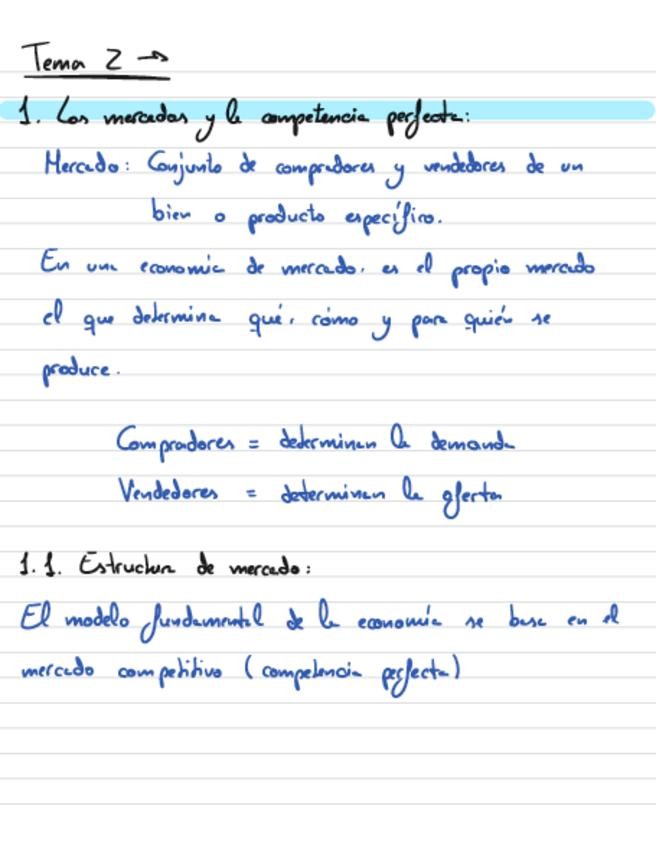 Tema 2 →
1. Los mercados y la competencia perfecta:
Mercado: Conjunto de compradores y vendedores de un
bien o producto específico.
En una economía de mercado, es el propio mercado
el que determina qué, cómo y para quién se
produce.
Compradores = determinan la demanda
Vendedores = determinan la oferta
1.1. Estructura de mercado:
El modelo fundamental de la economía se basa en el
mercado competitivo (competencia perfecta)